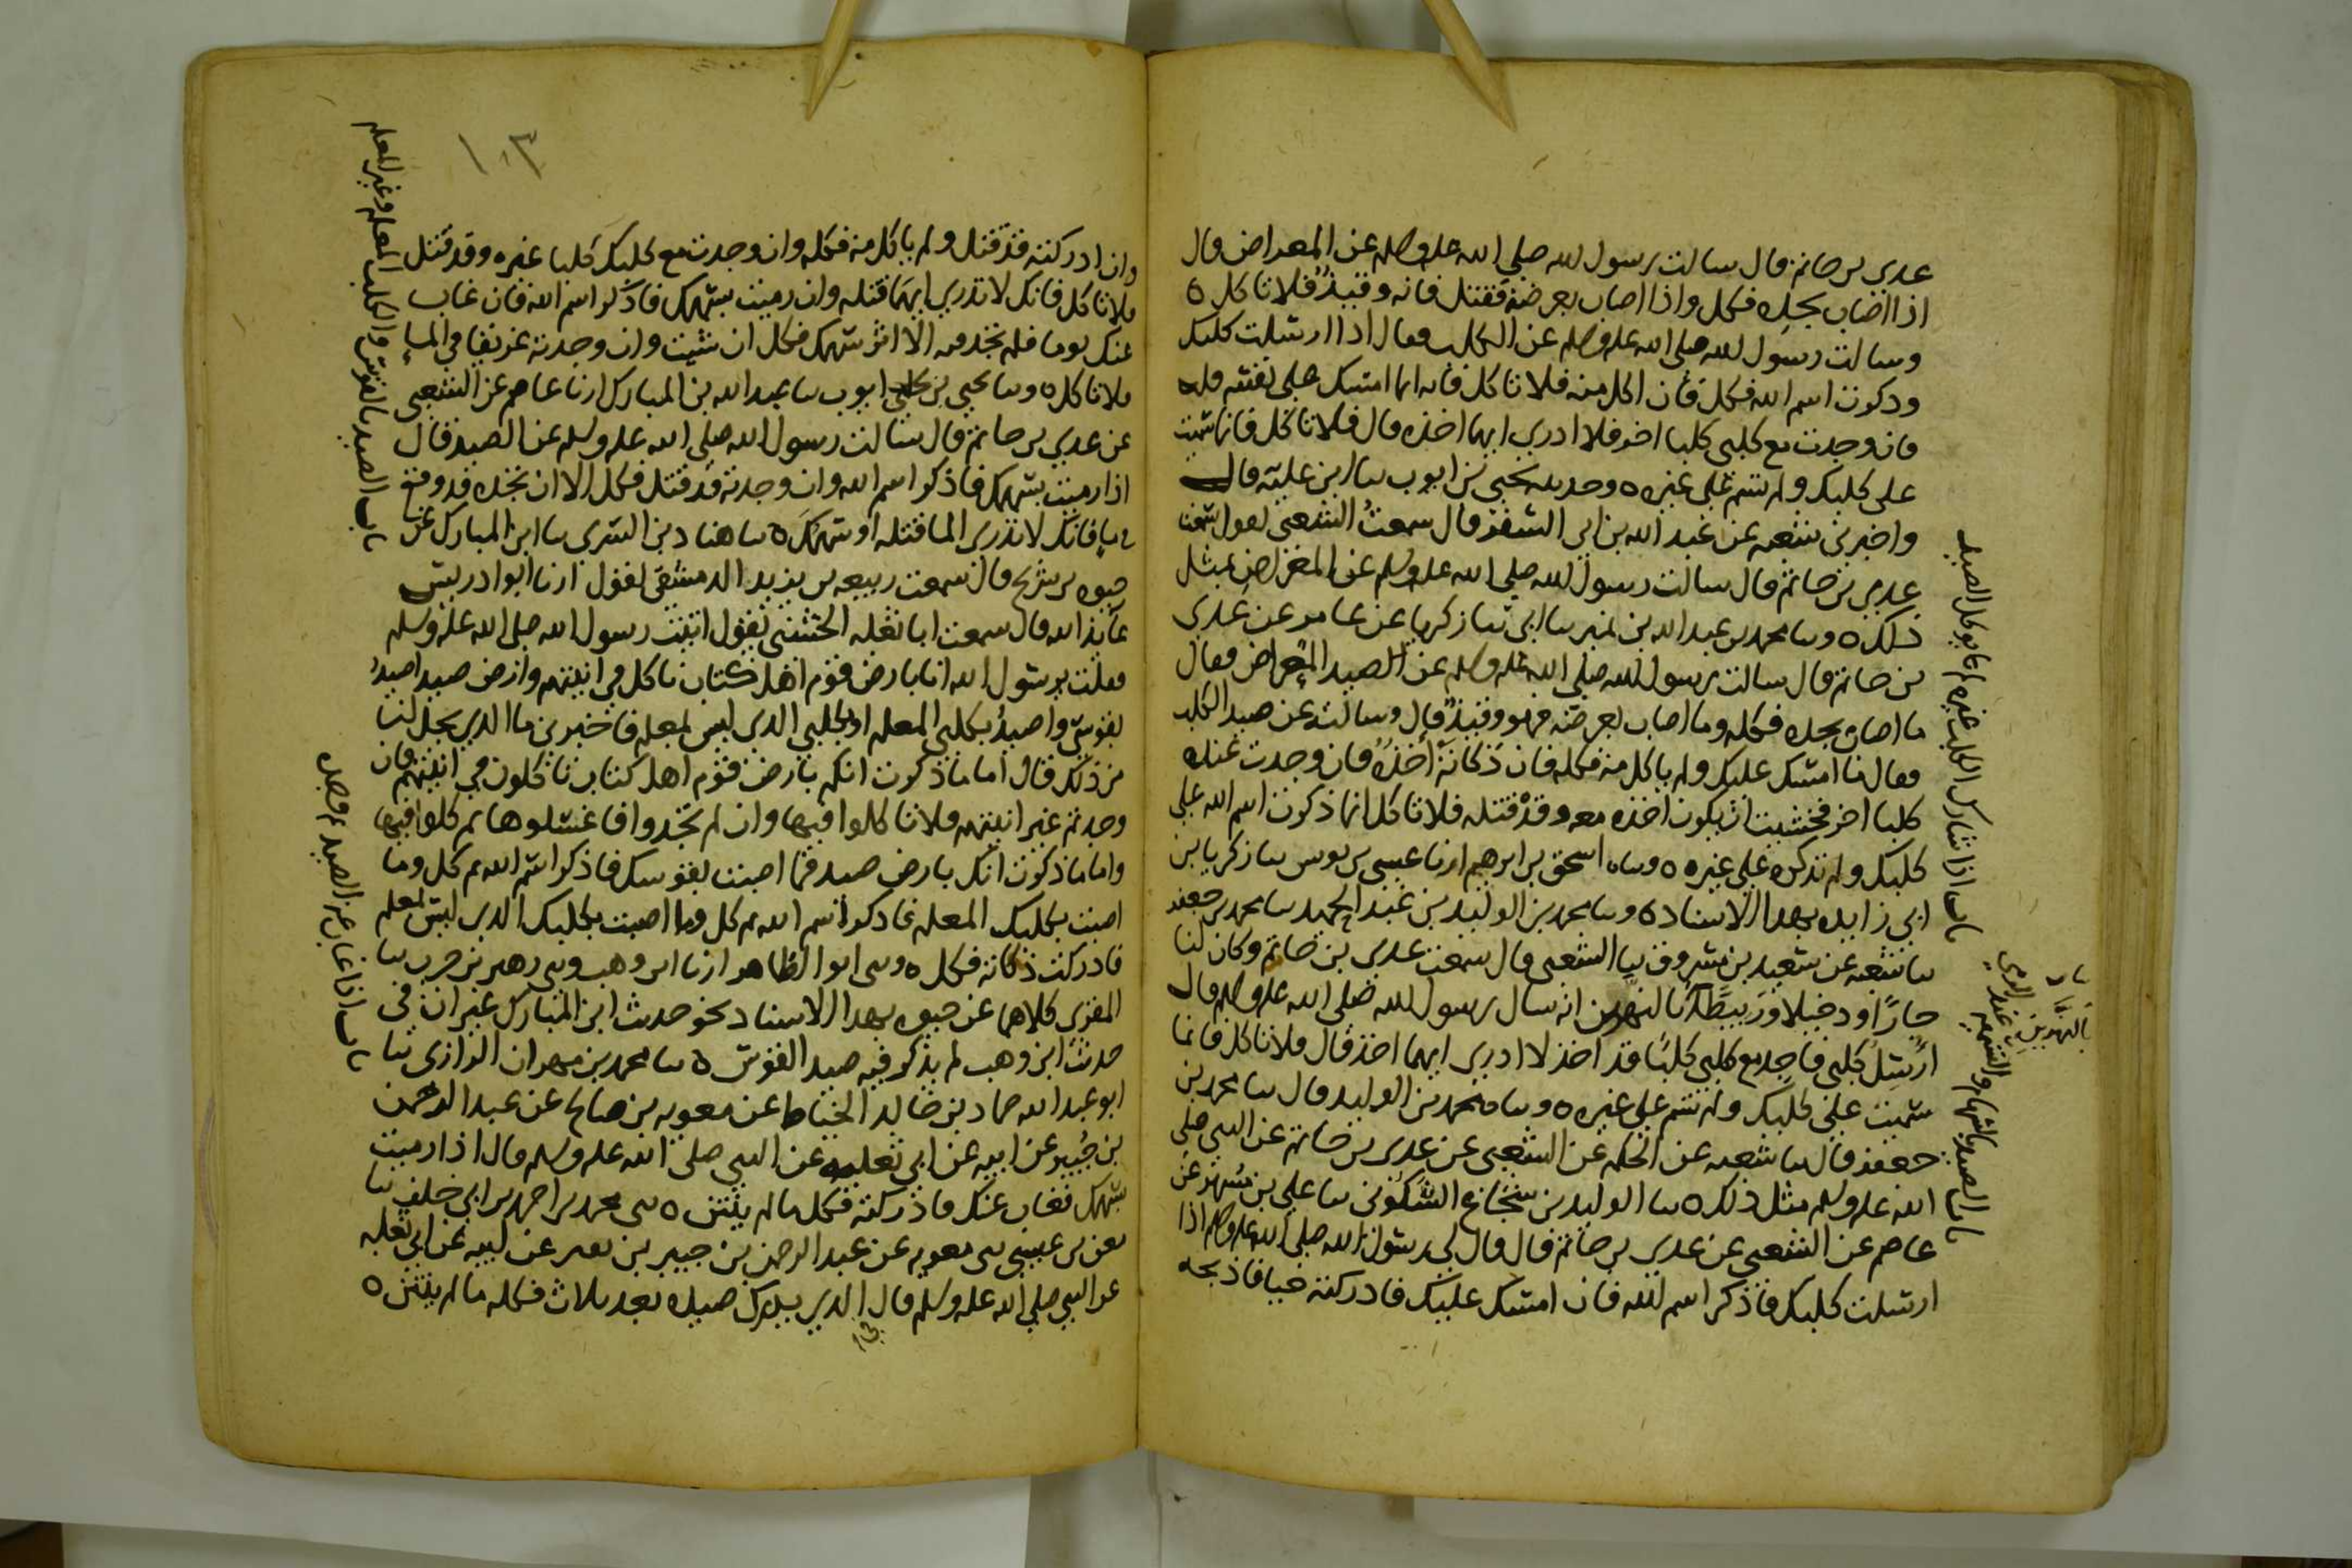 عدي بن حاتم قال سالت رسول الله صلى الله عليه وسلم عن المعراض قال
اذا اصاب بحده فكل واذا اصاب بعرضه فقتل فانه وقيذ فلا تاكل ه
وسالت رسول الله صلى الله عليه وسلم عن الكلب فقال اذا ارسلت كلبك
وذكرت اسم الله فكل فان اكل منه فلا تاكل فانه انما امسك على نفسه قلت
فان وجدت مع كلبي كلبا اخر فلا ادري ايهما اخذه قال فلا تاكل فانما سميت
على كلبك ولم تسم على غيره ه وحدثنا يحيى بن ايوب سا ابن علية قال
واخبرني شعبه عن عبد الله بن ابي السفر قال سمعت الشعبي يقول سمعت
عدي بن حاتم قال سالت رسول الله صلى الله عليه وسلم عن المعراض بمثل
ذلك ه وسا محمد بن عبد الله بن نمير سا ابي سا زكريا عن عامر عن عدي
بن حاتم قال سالت رسول الله صلى الله عليه وسلم عن الصيد المعراض فقال
ما اصاب بحده فكله وما اصاب بعرضه فهو وقيذ قال وسالته عن صيد الكلب
فقال ما امسك عليك ولم ياكل منه فكله فان ذكاته اخذه فان وجدت عنده
كلبا اخر فخشيت ان يكون اخذه معه وقد قتله فلا تاكل انما ذكرت اسم الله على
كلبك ولم تذكره على غيره ه وسا اسحق بن ابرهيم ارنا عيسى بن يونس سا زكريا بن
ابي زايده بهذا الاسناد ه وسا محمد بن الوليد بن عبد الحميد سا محمد بن جعفر
سا شعبه عن سعيد بن مسروق سا الشعبي قال سمعت عدي بن حاتم وكان لنا
جارا ودخيلا وربيطا بالنهرين انه سال رسول الله صلى الله عليه وسلم قال
ارسل كلبي فاجد مع كلبي كلبا قد اخذ لا ادري ايهما اخذ قال فلا تاكل فانما
سميت على كلبك ولم تسم على غيره ه وسا محمد بن الوليد قال سا محمد بن
جعفر قال سا شعبه عن الحكم عن الشعبي عن عدي بن حاتم عن النبي صلى
الله عليه وسلم مثل ذلك ه سا الوليد بن شجاع السكوني سا علي بن مسهر عن
عاصم عن الشعبي عن عدي بن حاتم قال قال لي رسول الله صلى الله عليه وسلم اذا
ارسلت كلبك فاذكر اسم الله فان امسك عليك فادركته حيا فاذبحه
باب اذا شارك الكلب غيره لم يوكل الصيد
بالنهرين
باب الصيد بالسهام والتسميه عند الرمي
١٠٣
وان ادركته قد قتل ولم ياكل منه فكله وان وجدت مع كلبك كلبا غيره وقد قتل
فلا تاكل فانك لا تدري ايهما قتله وان رميت بسهمك فاذكر اسم الله فان غاب
عنك يوما فلم تجد فيه الا اثر سهمك فكل ان شيت وان وجدته غريقا في الماء
فلا تاكل ه وسا يحيى بن ايوب سا عبد الله بن المبارك ارنا عاصم عن الشعبي
عن عدي بن حاتم قال سالت رسول الله صلى الله عليه وسلم عن الصيد قال
اذا رميت بسهمك فاذكر اسم الله وان وجدته قد قتل فكل الا ان تجده قد وقع
في ماء فانك لا تدري الما قتله او سهمك ه سا هناد بن السري سا ابن المبارك عن
حيوه بن شريح قال سمعت ربيعه بن يزيد الدمشقي يقول ارنا ابو ادريس
عايذ الله قال سمعت ابا ثعلبه الخشني يقول اتيت رسول الله صلى الله عليه وسلم
فقلت يرسول الله انا بارض قوم اهل كتاب ناكل في انيتهم وارض صيد اصيد
بقوسي واصيد بكلبي المعلم او بكلبي الذي ليس بمعلم فاخبرني ما الذي يحل لنا
من ذلك قال اما ما ذكرت انكم بارض قوم اهل كتاب تاكلون في انيتهم فان
وجدتم غير انيتهم فلا تاكلوا فيها وان لم تجدوا فاغسلوها ثم كلوا فيها
واما ما ذكرت انك بارض صيد فما اصبت بقوسك فاذكر اسم الله ثم كل وما
اصبت بكلبك المعلم فاذكر اسم الله ثم كل وما اصبت بكلبك الذي ليس بمعلم
فادركت ذكاته فكل ه وسى ابو الطاهر ارنا ابن وهب وسى زهير بن حرب سا
المقري كلاهما عن حيوه بهذا الاسناد نحو حديث ابن المبارك غير ان في
حديث ابن وهب لم يذكر فيه صيد القوس ه سا محمد بن مهران الرازي سا
ابو عبد الله حماد بن خالد الخياط عن معويه بن صالح عن عبد الرحمن
بن جبير عن ابيه عن ابي ثعلبه عن النبي صلى الله عليه وسلم قال اذا رميت
بسهمك فغاب عنك فادركته فكل ما لم ينتن ه سى محمد بن احمد بن ابي خلف سا
معن بن عيسى سى معويه عن عبد الرحمن بن جبير بن نفير عن ابيه عن ابي ثعلبه
عن النبي صلى الله عليه وسلم قال الذي يدرك صيده بعد ثلاث فكله ما لم ينتن ه
باب الصيد بالقوس والكلب المعلم وغير المعلم
باب اذا غاب عن الصيد ثم وجده